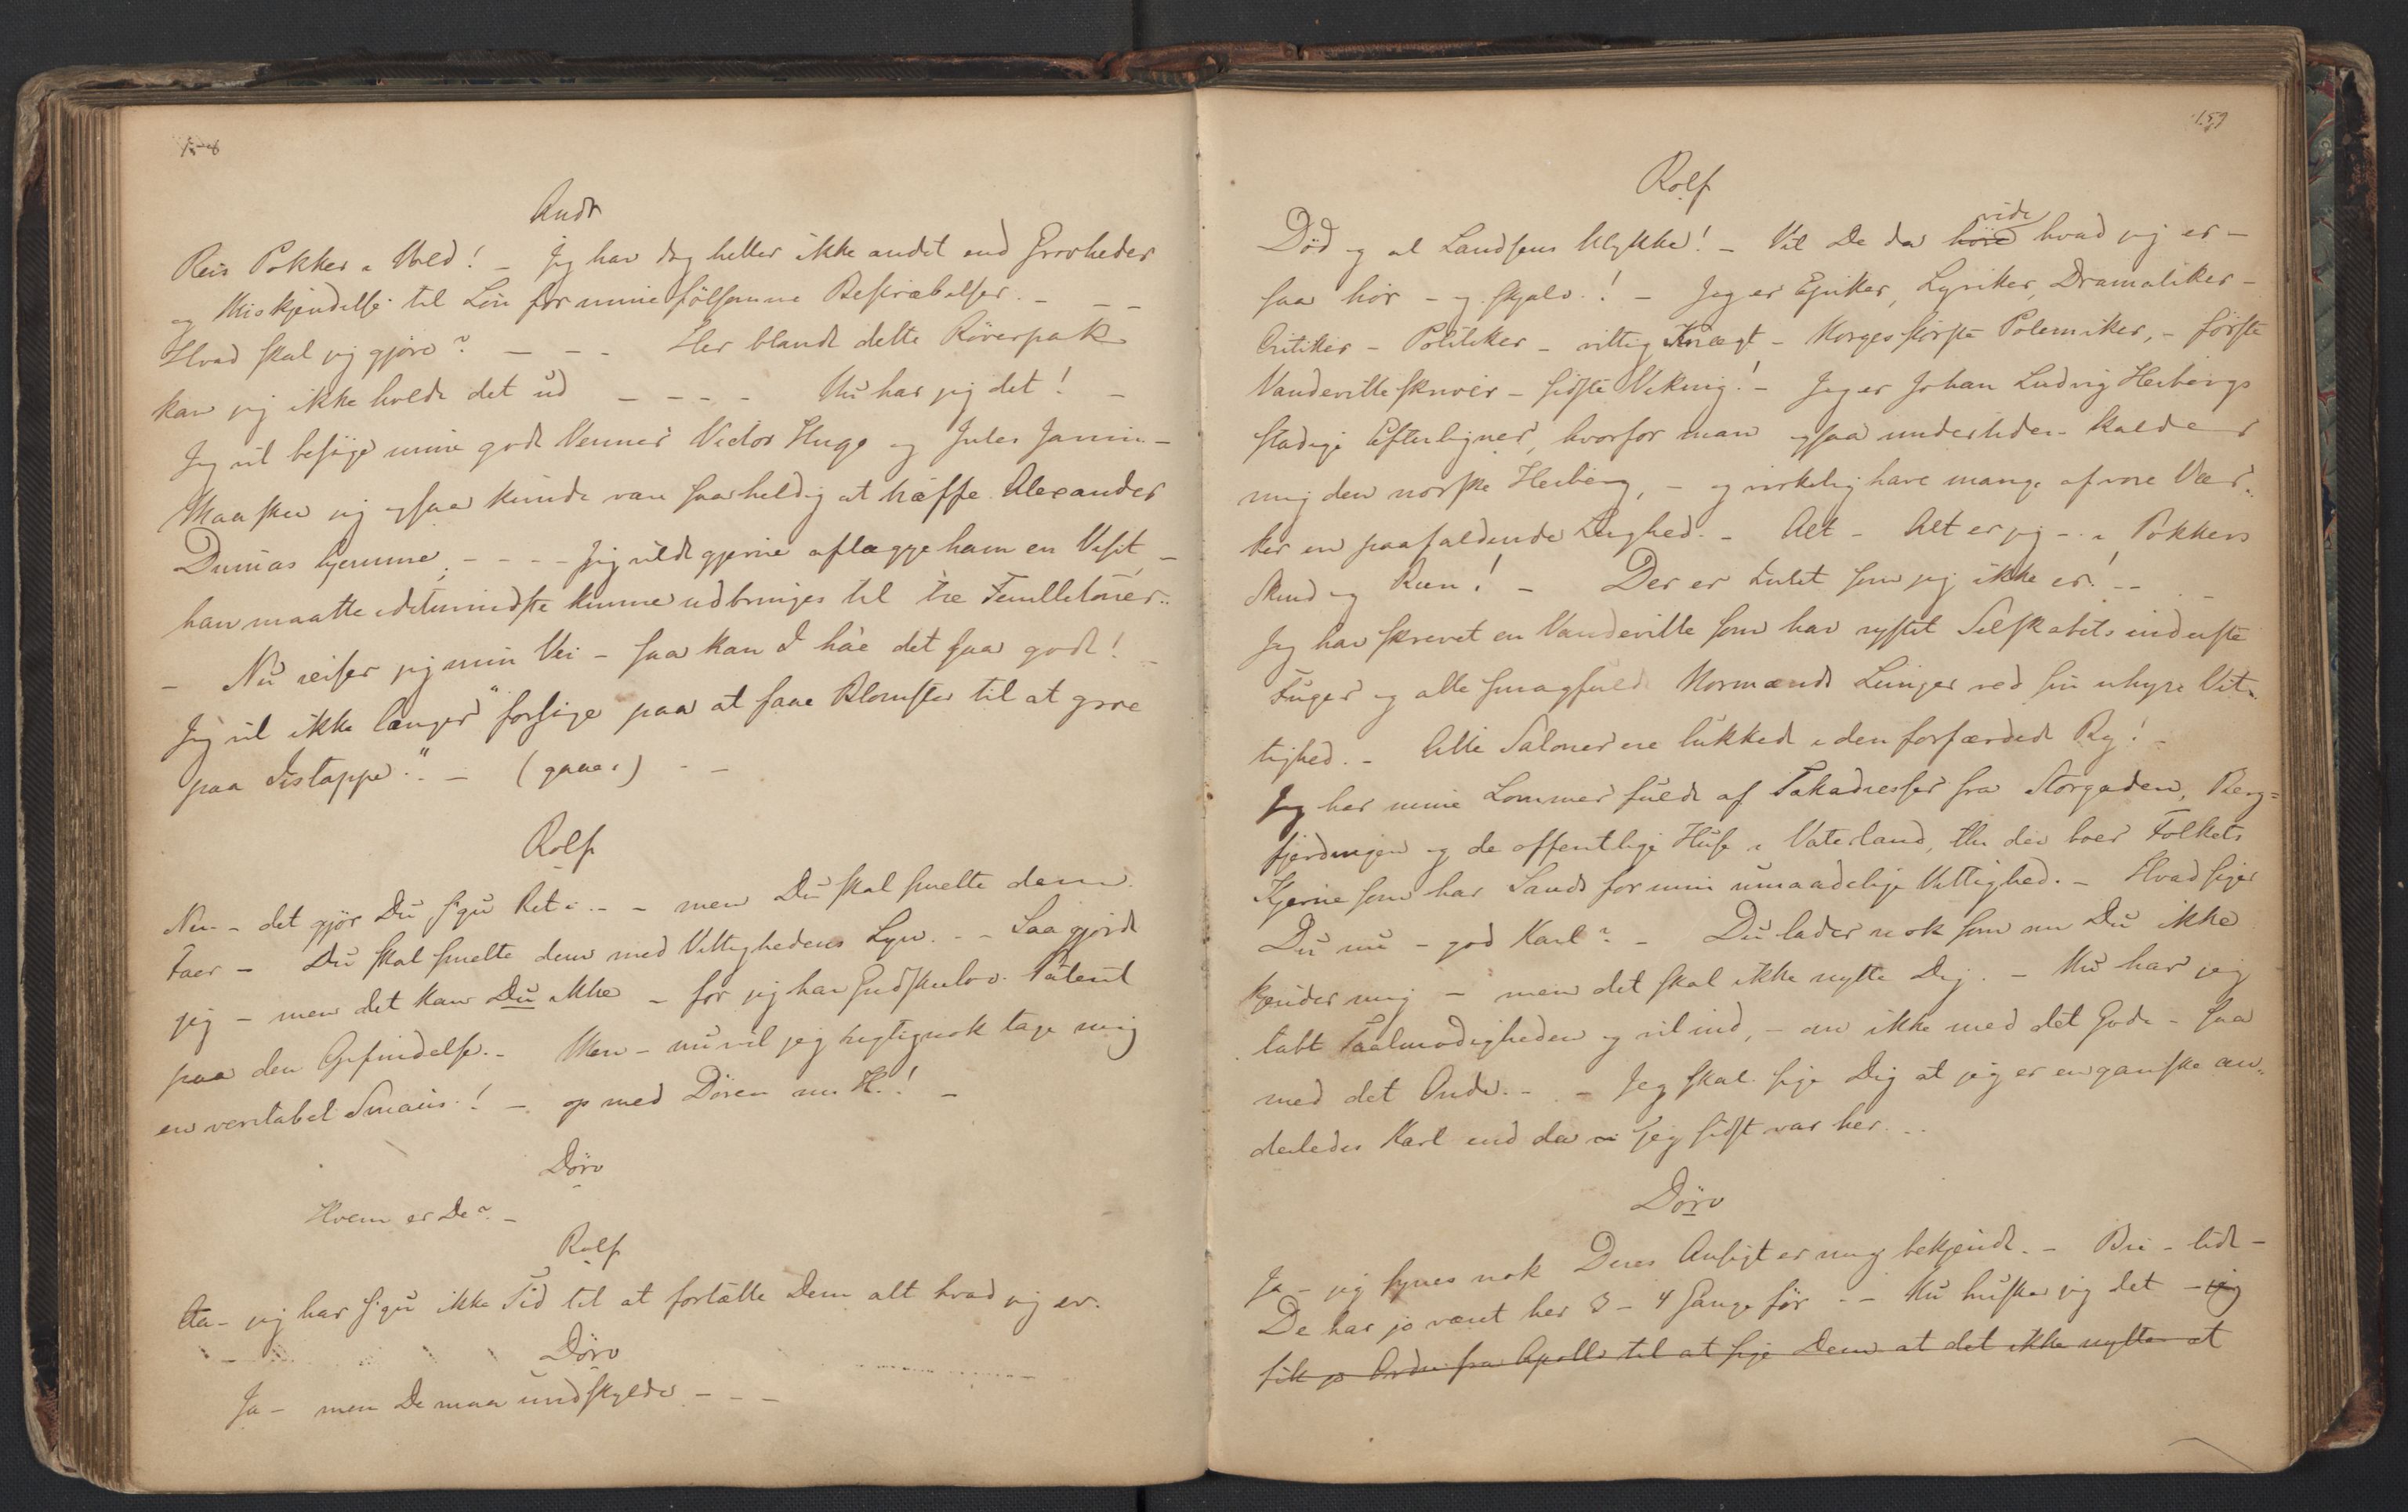 Knud
Reis Pokker i Vold! – Jeg har dog heller ikke andet end Grovheder
og Miskjendelse til Løn for mine følsomme Bestræbelser. – – –
Hvad skal jeg gjøre? – – – Her blandt dette Røverpak
kan jeg ikke holde det ud – – – – Nu har jeg det! –
Jeg vil besøge mine gode Venner Victor Hugo og Jules Janin –
Maaskee jeg ogsaa kunde være saa heldig at træffe Alexander
Dumas hjemme. – – – Jeg vilde gjerne aflægge ham en Visit, –
han maatte idetmindste kunne udbringes til tre Feuilletoner..
– Nu reiser jeg min Vei – saa kan I hâe det saa godt! –
Jeg vil ikke længer "forsøge paa at faae Blomster til at groe
paa Istappe". – (gaaer) – –
Rolf
Nei – det gjør Du sgu Ret i. – – men Du skal smelte dem
Faer – Du skal smelte dem med Vittighedens Lyn. – – Saa gjorde
jeg – men det kan Du ikke – for jeg har Gudskeelov Patent
paa den Opfindelse. – Men – nu vil jeg rigtignok tage mig
en veritabel Smaus! – op med Døren m. H.! –
Dörv
Hvem er De? –
Rolf
Aa – jeg har sgu ikke Tid til at fortælle Dem alt hvad jeg er.
Dörv
Ja – men De maa undskylde – – –
159
Rolf
Død og al Landsens Ulykke! – Vil De da høre vide hvad jeg er –
saa hør – og skjælv! – Jeg er Epiker, Lyriker, Dramatiker –
Critiker – Politiker – vittig Knægt – Norges første Polemiker, – første
Vaudevilleskriver – sidste Viking! – Jeg er Johan Ludvig Heibergs
stadige Efterligner, hvorfor man ogsaa undertiden kalder
mig den norske Heiberg, – og virkelig have mange af vore Vær-
ker en paafaldende Liighed. – Alt – Alt er jeg – i Pokkers
Skind og Been! – Der er Intet som jeg ikke er! – –
Jeg har skrevet en Vaudeville som har rystet Selskabets inderste
Fuger og alle smagfulde Normænds Lunger ved sin uhyre Vit-
tighed. – Alle Saloner ere lukkede i den forfærdede By! –
Jeg har mine Lommer fulde af Takadresser fra Storgaden, Berg-
fjerdingen og de offentlige Huse i Vaterland, thi der boer Folkets
Kjerne som har Sands for min umaadelige Vittighed. – Hvad siger
Du nu – god Karl? – Du lader nok som om Du ikke
kjender mig – men det skal ikke nytte Dig. – Nu har jeg
tabt Taalmodigheden og vil ind, – om ikke med det Gode – saa
med det Onde. – – Jeg skal sige Dig at jeg er en ganske an-
derledes Karl end da jeg sidst var her. –
Dörv
Ja – jeg synes nok Deres Ansigt er mig bekjendt. – Bie – lidt –
De har jo været her 3 – 4 Gange før – – Nu husker jeg det – jeg
fik jo Ordre fra Apollo til at sige Dem at det ikke nytter at